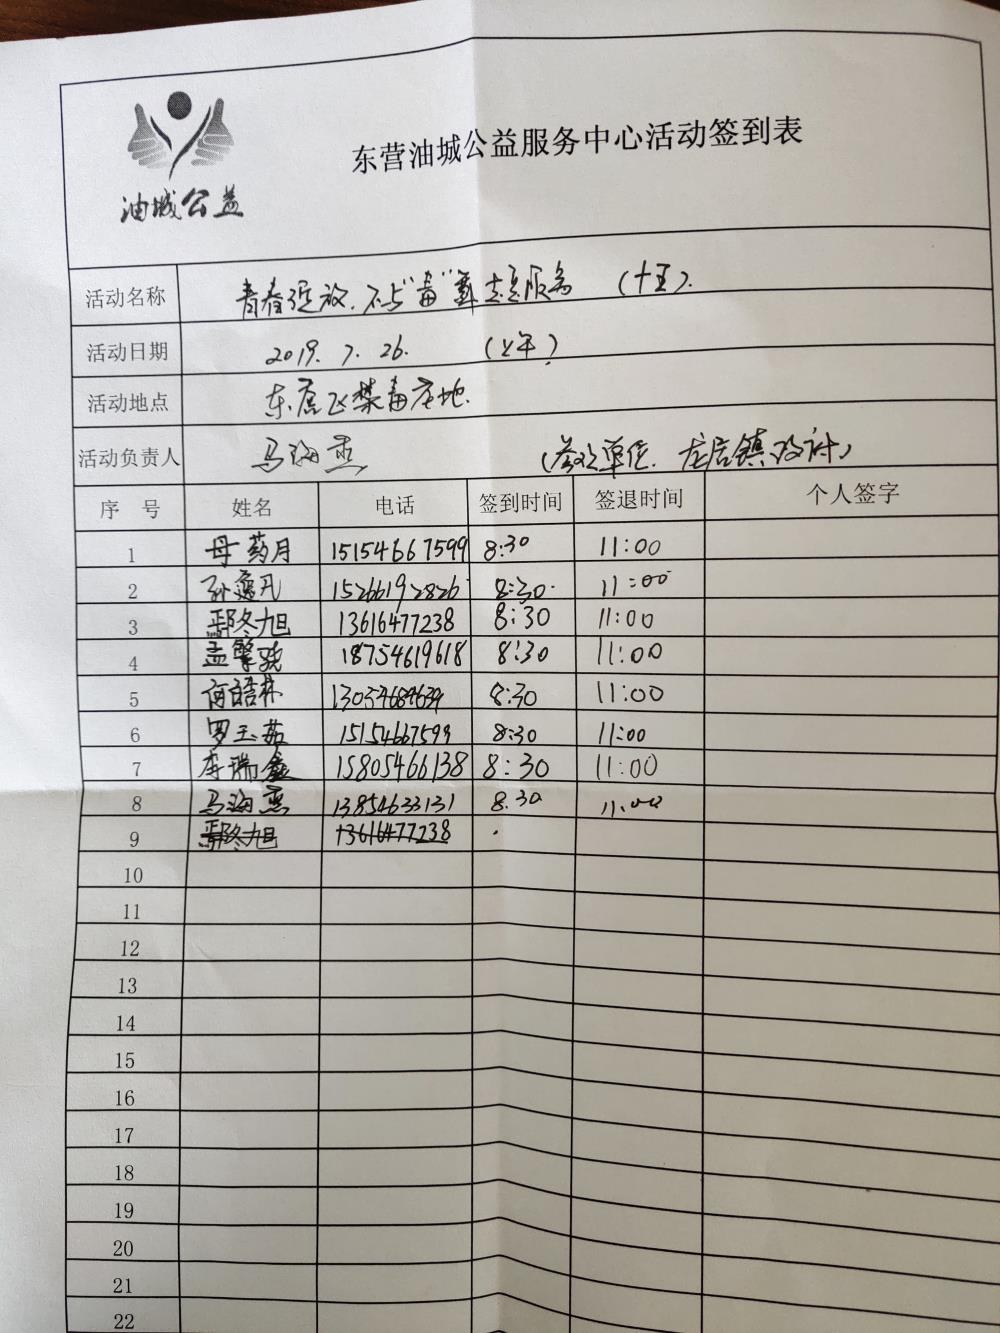 油城公益
东营油城公益服务中心活动签到表
活动名称 青春绽放.不与"毒"舞志愿服务 (十五).
活动日期 2019.7.26. (上午)
活动地点 东营区禁毒基地.
活动负责人 马海燕 (参观单位. 龙居镇)
序号 姓名 电话 签到时间 签退时间 个人签字
1 母药月 15154667599 8:30 11:00
2 孙逸凡 15266192826 8:30 11:00
3 鄢冬旭 13616477238 8:30 11:00
4 孟擎骁 18754619618 8:30 11:00
5 何皓林 8:30 11:00
6 罗玉茹 15154667599 8:30 11:00
7 李瑞鑫 15805466138 8:30 11:00
8 马海燕 13854633131 8.30 11:00
9 鄢冬旭 13616477238
10
11
12
13
14
15
16
17
18
19
20
21
22